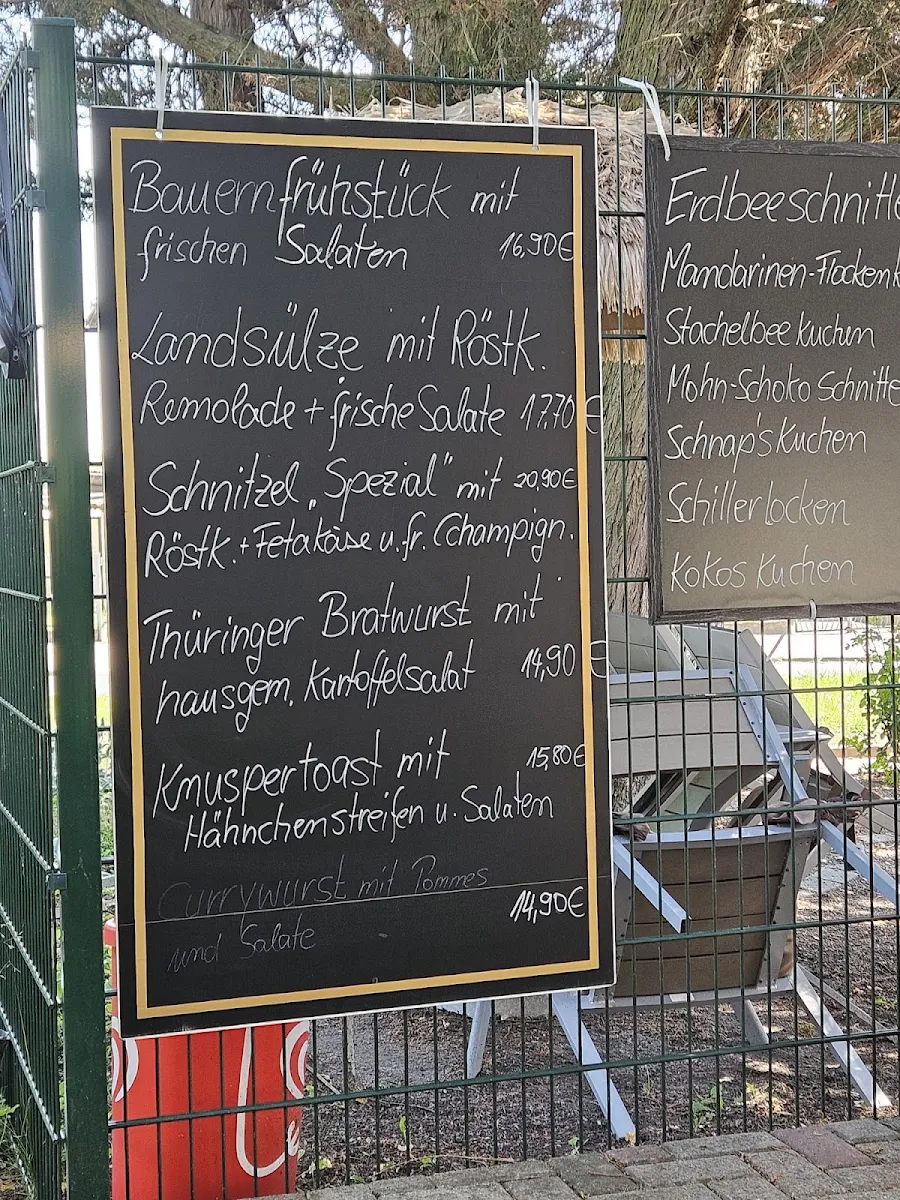 Bauernfrühstück mit
frischen Salaten 16,90€
Landsülze mit Röstk.
Remolade + frische Salate 17,70€
Schnitzel „Spezial" mit 20,90€
Röstk. + Fetakäse u. fr. Cchampign.
Thüringer Bratwurst mit
hausgem. Kartoffelsalat 14,90€
Knuspertoast mit 15,80€
Hähnchenstreifen u. Salaten
Currywurst mit Pommes
und Salate 14,90€
Erdbeeschnitte
Mandarinen-Flocken
Stachelbee Kuchen
Mohn-Schoko Schnitte
Schnap's Kuchen
Schillerlocken
Kokos Kuchen